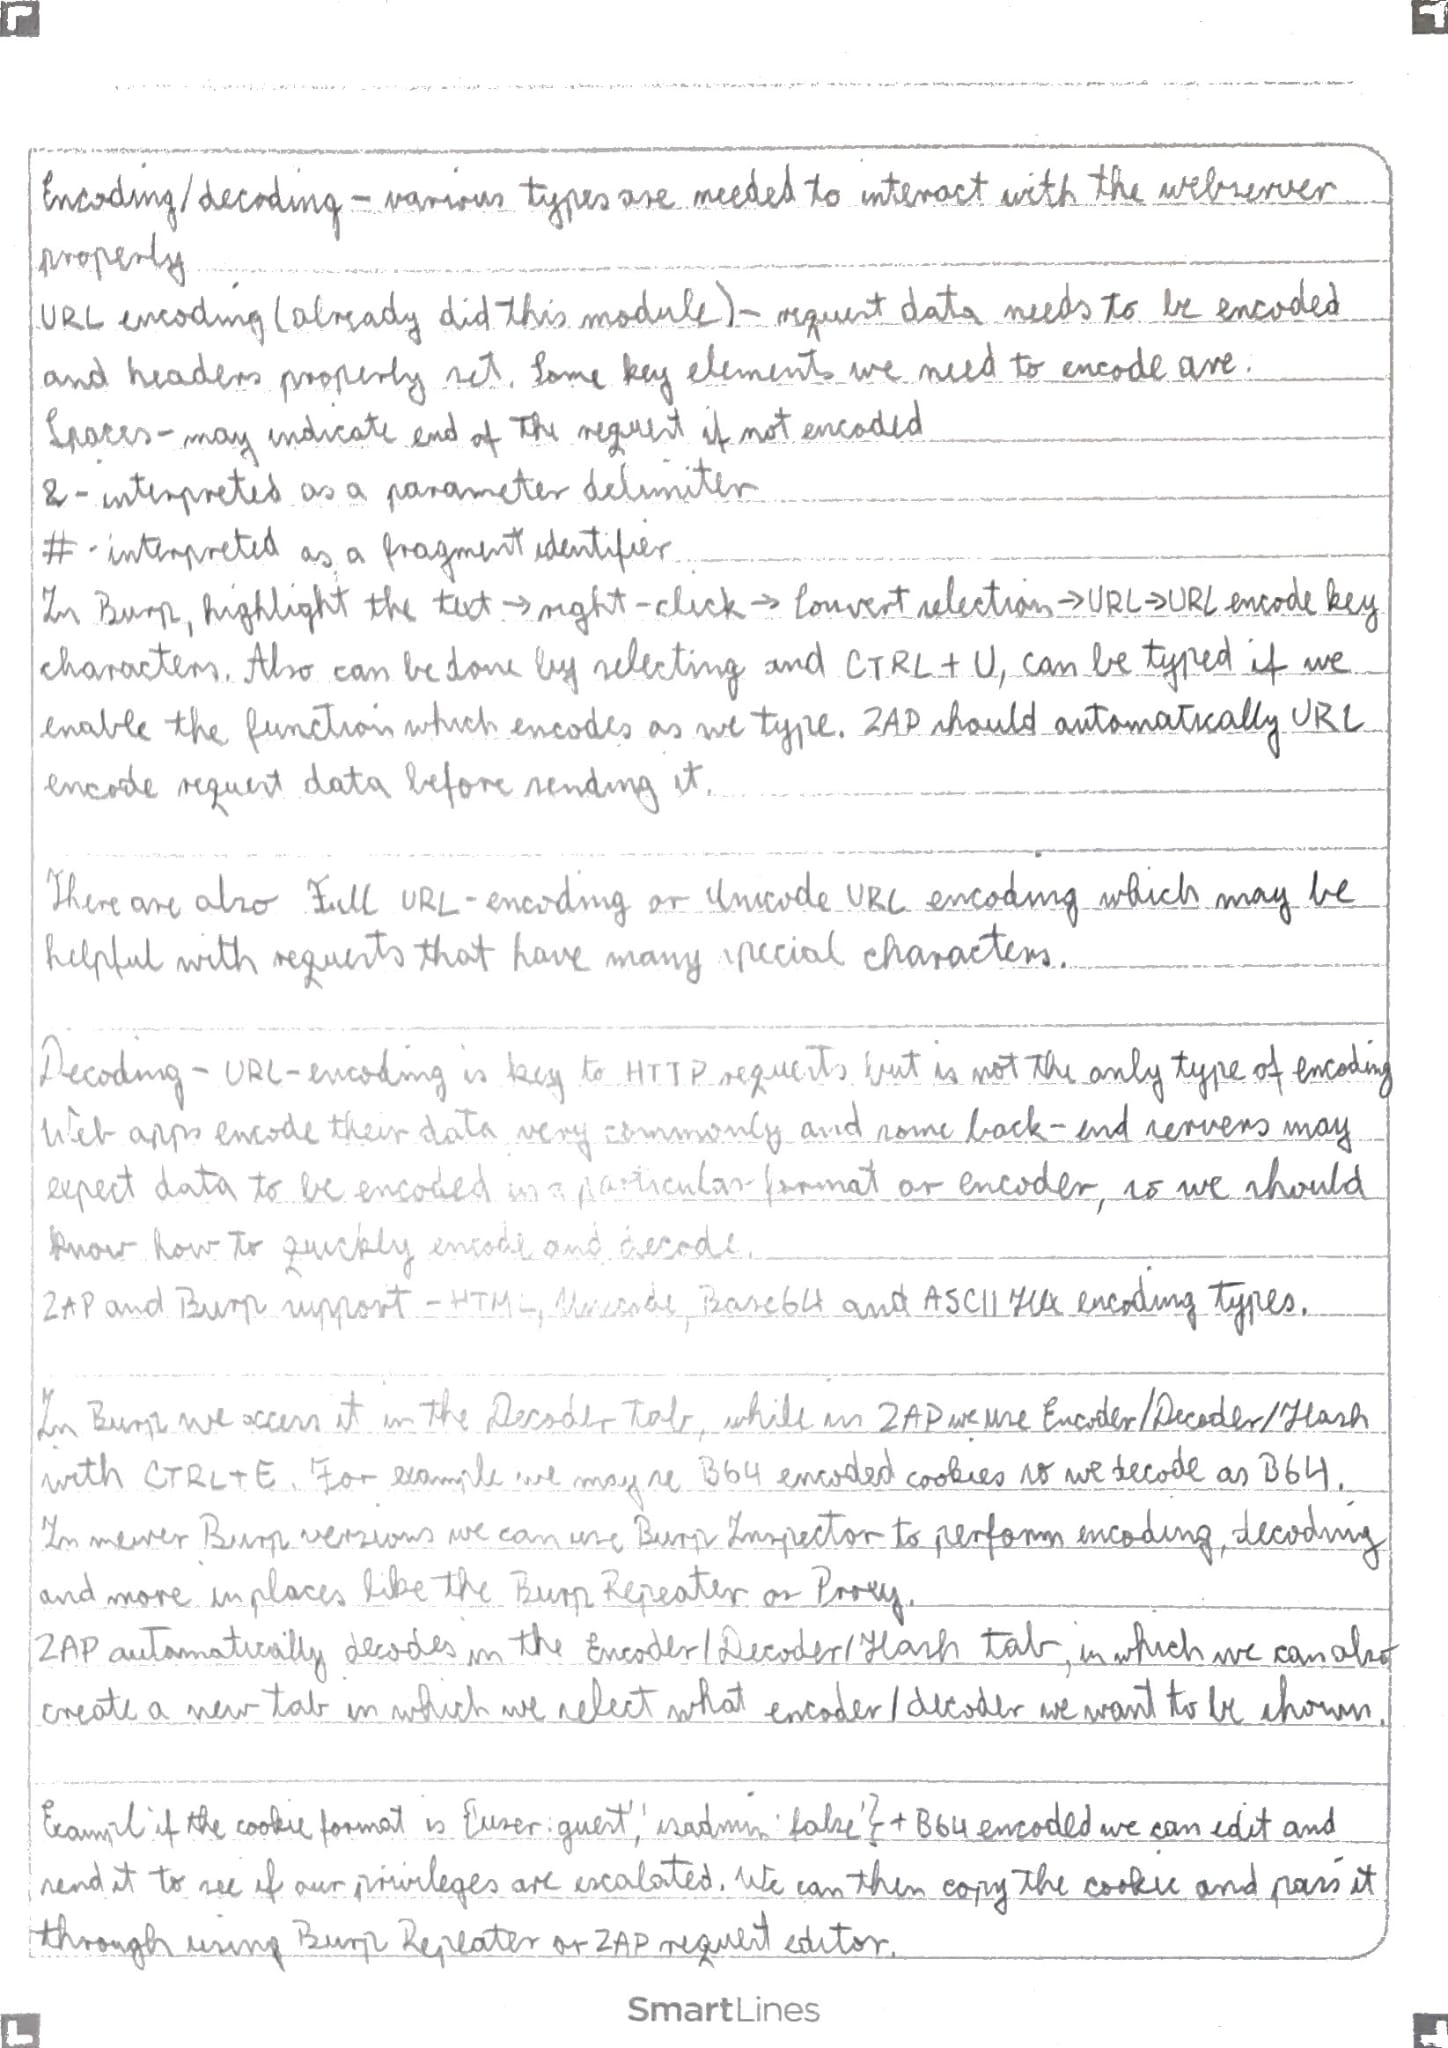 Encoding/decoding - various types are needed to interact with the webserver
properly
URL encoding (already did this module) - request data needs to be encoded
and headers properly set. Some key elements we need to encode are:
Spaces - may indicate end of the request if not encoded
& - interpreted as a parameter delimiter
# - interpreted as a fragment identifier
In Burp, highlight the text → right-click → Convert selection → URL → URL encode key
characters. Also can be done by selecting and CTRL+U, can be typed if we
enable the function which encodes as we type. ZAP should automatically URL
encode request data before sending it.
There are also Full URL-encoding or Unicode URL encoding which may be
helpful with requests that have many special characters.
Decoding - URL-encoding is key to HTTP requests but is not the only type of encoding
Web apps encode their data very commonly and some back-end servers may
expect data to be encoded in a particular format or encoder, so we should
know how to quickly encode and decode.
ZAP and Burp support - HTML, Unicode, Base64 and ASCII Hex encoding types.
In Burp we access it in the Decoder tab, while in ZAP we use Encoder/Decoder/Hash
with CTRL+E. For example we may se B64 encoded cookies so we decode as B64.
In newer Burp versions we can use Burp Inspector to perform encoding, decoding
and more in places like the Burp Repeater or Proxy.
ZAP automatically decodes in the Encoder/Decoder/Hash tab, in which we can also
create a new tab in which we select what encoder/decoder we want to be shown.
Exampl if the cookie format is {'user:guest','isadmin:false'} + B64 encoded we can edit and
send it to see if our privileges are escalated. We can then copy the cookie and pass it
through using Burp Repeater or ZAP request editor.
SmartLines